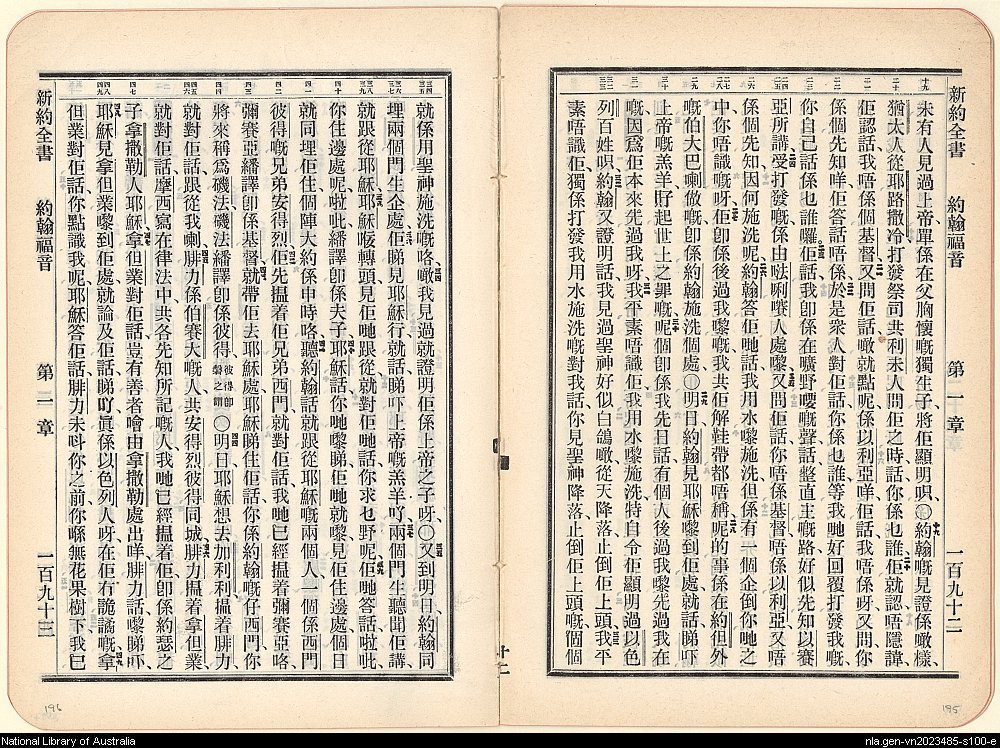 新約全書 約翰福音 第一章 一百九十二
未有人見過上帝單係在父胸懷嘅獨生子將佢顯明唭〇約翰嘅見證係噉樣
猶太人從耶路撒冷打發祭司共利未人問佢之時話你係乜誰佢就認唔隱諱
佢認話我唔係個基督又問佢話噉就點呢係以利亞咩佢話我唔係呀又問你
係個先知咩佢答話唔係於是衆人對佢話你係也誰等我哋好回覆打發我嘅
你自己話係也誰囉佢話我卽係在曠野嗌嘅聲話整直主嘅路好似先知以賽
亞所講受打發嘅係由㗎唎賽人處嚟又問佢話你唔係基督唔係以利亞又唔
係個先知因何施洗呢約翰答佢哋話我用水嚟施洗但係有一個企倒你哋之
中你唔識嘅呀佢卽係後過我嚟嘅我共佢解鞋帶都唔稱呢的事係在約但外
嘅伯大巴喇做嘅卽係約翰施洗個處〇明日約翰見耶穌嚟到佢處就話睇吓
上帝嘅羔羊孭起世上之罪嘅呢個卽係我先日話有個人後過我嚟先過我在
嘅因爲佢本來先過我呀我平素唔識佢我用水嚟施洗特自令佢顯明過以色
列百姓唄約翰又證明話我見過聖神好似白鴿噉從天降落止倒佢上頭我平
素唔識佢獨係打發我用水施洗嘅對我話你見聖神降落止倒佢上頭嘅個個
就係用聖神施洗嘅咯噉我見過就證明佢係上帝之子呀〇又到明日約翰同
埋兩個門生企處佢睇見耶穌行就話睇吓上帝嘅羔羊吖兩個門生聽聞佢講
就跟從耶穌耶穌㧬轉頭見佢哋跟從就對佢哋話你求乜野呢佢哋答話啦吡
你住邊處呢啦吡繙譯卽係夫子耶穌話你哋嚟睇佢哋就嚟見佢住邊處個日
就同埋佢住個陣大約係申時咯聽約翰話就跟從耶穌嘅兩個人一個係西門
彼得嘅兄弟安得烈佢先揾着佢兄弟西門就對佢話我哋已經揾着彌賽亞咯
彌賽亞繙譯卽係基督就帶佢去耶穌處耶穌睇住佢話你係約翰嘅仔西門你
將來稱爲磯法磯法繙譯卽係彼得彼得卽磐之謂〇明日耶穌想去加利利揾着腓力
就對佢話跟從我喇腓力係伯賽大嘅人共安得烈彼得同城腓力揾着拿但業
就對佢話摩西寫在律法中共各先知所記嘅人我哋已經揾着佢卽係約瑟之
子拿撒勒人耶穌拿但業對佢話豈有善者噲由拿撒勒處出咩腓力話嚟睇吓
耶穌見拿但業嚟到佢處就論及佢話睇吖眞係以色列人呀在佢冇詭譎嘅拿
但業對佢話你點識我呢耶穌答佢話腓力未呌你之前你喺無花果樹下我已
新約全書 約翰福音 第一章 一百九十三
196
195
National Library of Australia
nla.gen-vn2023485-s100-e